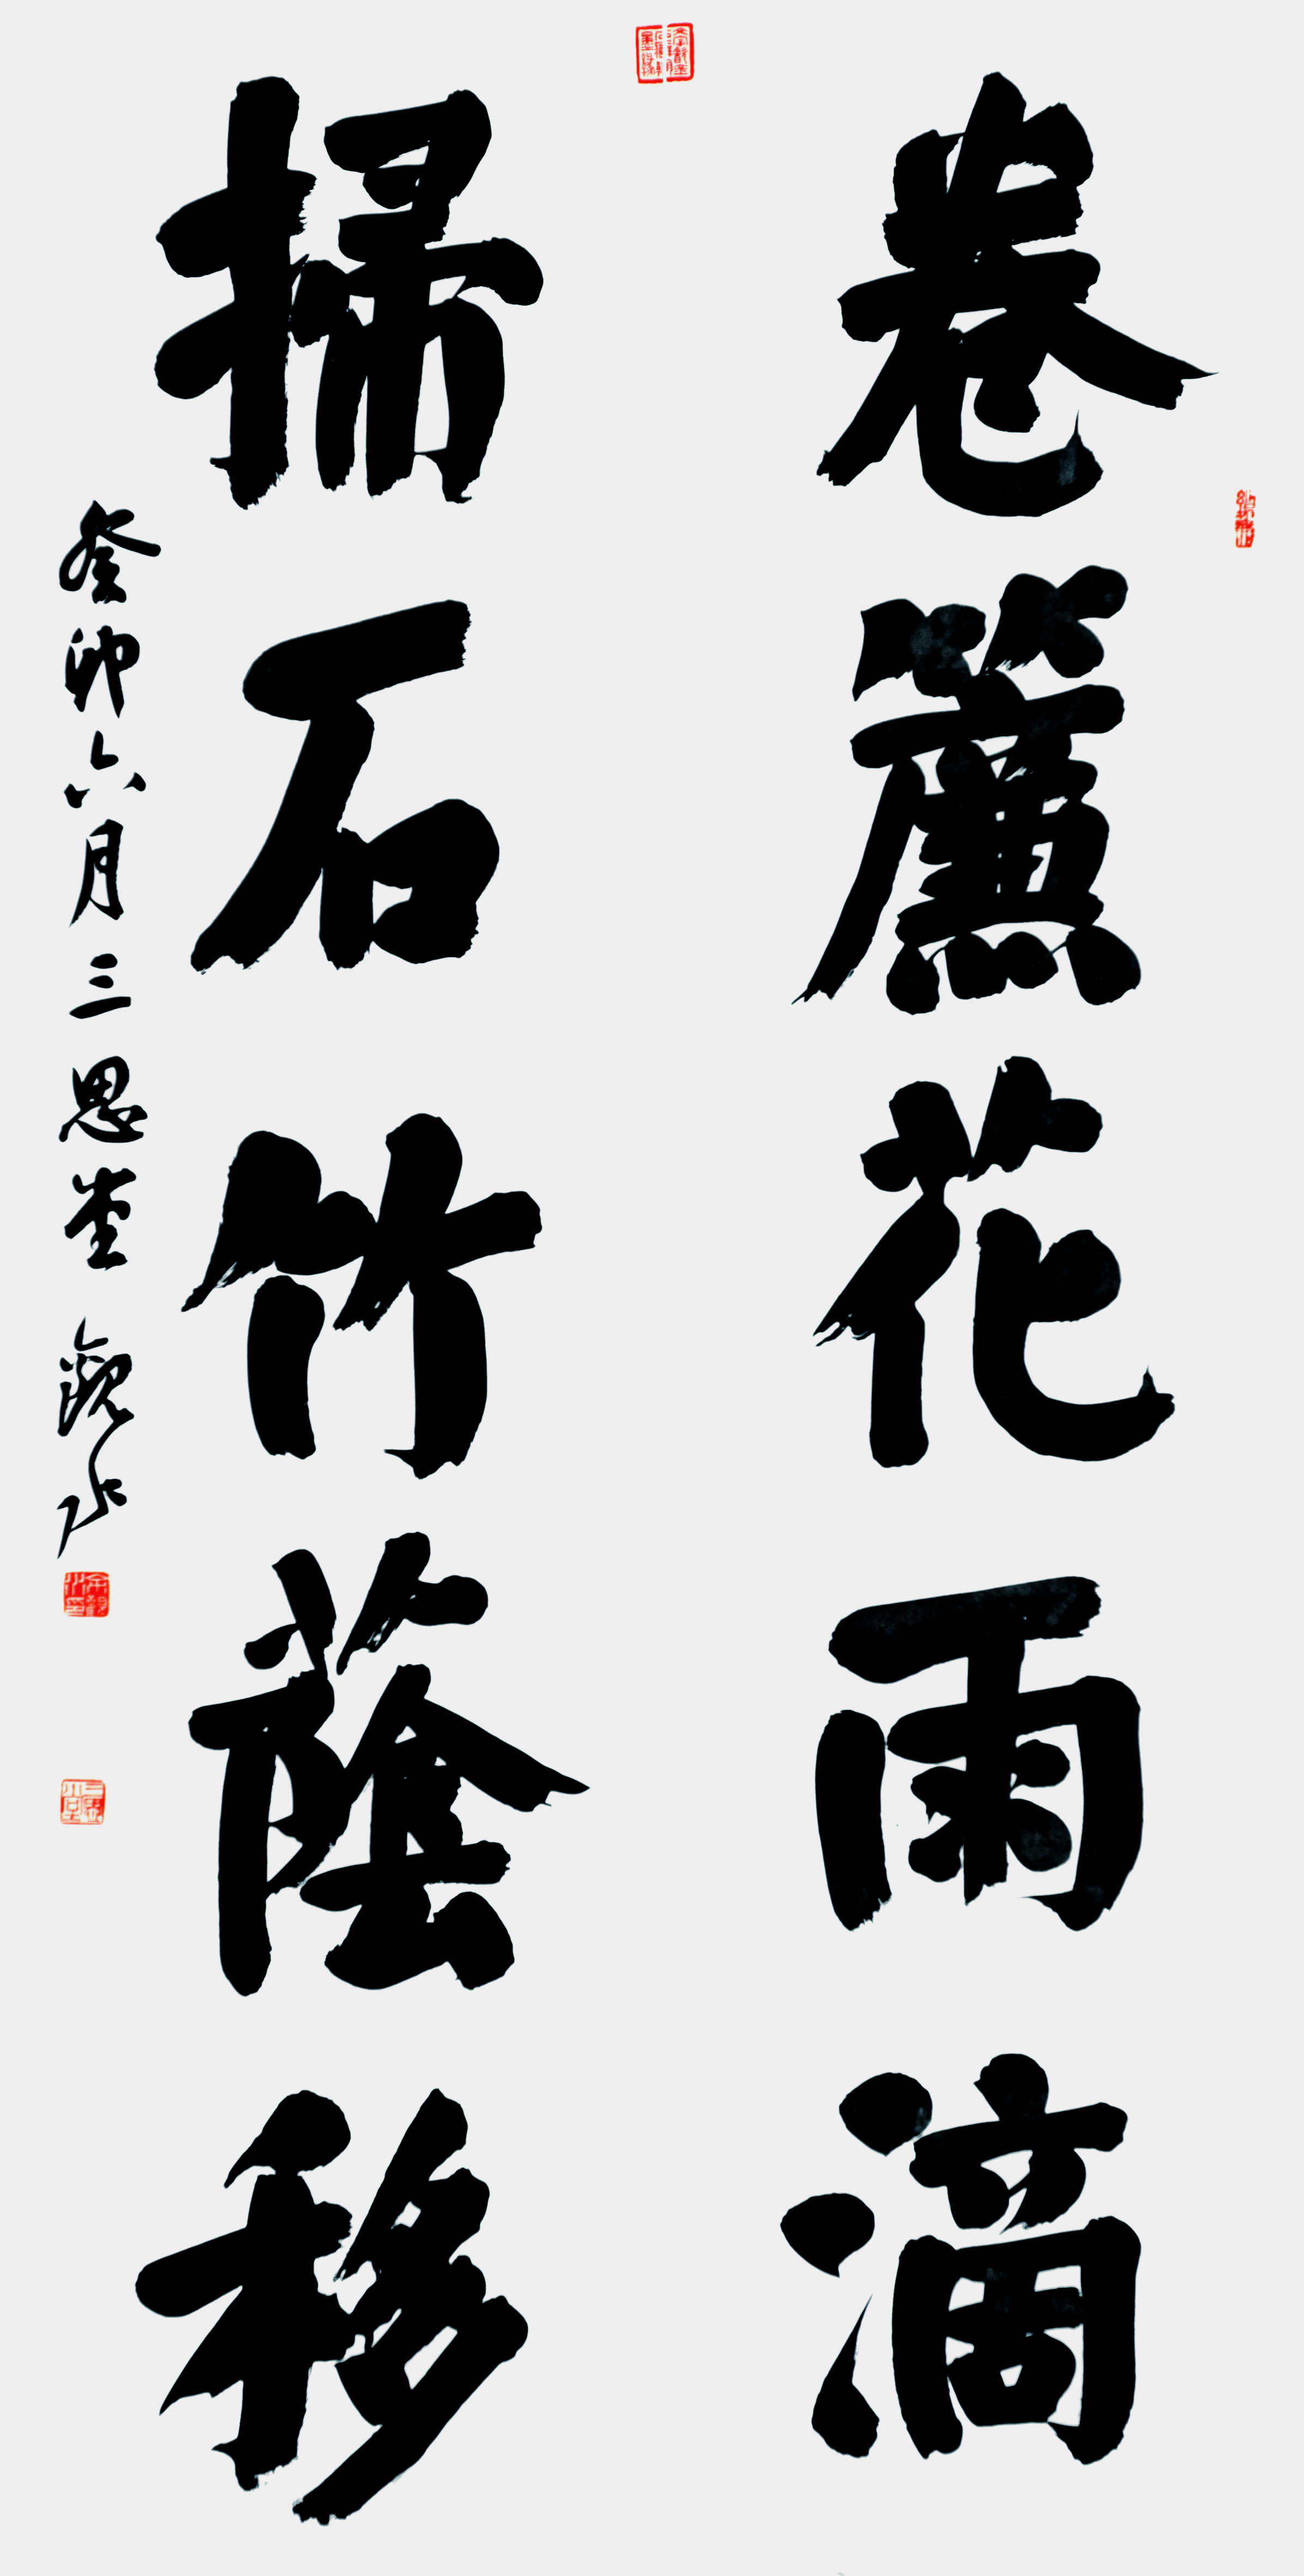 卷簾花雨滴
掃石竹蔭移
癸卯六月三思堂觀水